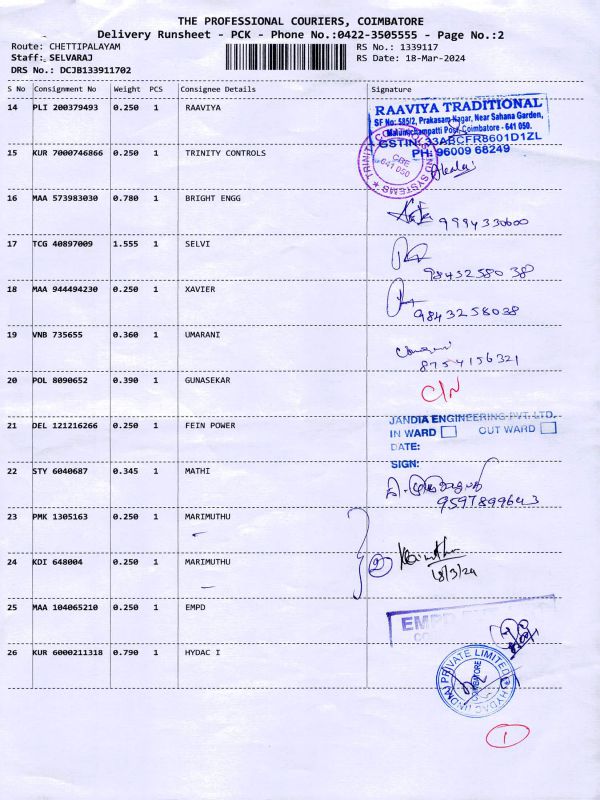 THE PROFESSIONAL COURIERS, COIMBATORE
Delivery Runsheet - PCK - Phone No.:0422-3505555 - Page No.:2
Route: CHETTIPALAYAM RS No.: 1339117
Staff: SELVARAJ RS Date: 18-Mar-2024
DRS No.: DCJB133911702
S No Consignment No Weight PCS Consignee Details Signature
14 PLI 200379493 0.250 1 RAAVIYA
RAAVIYA TRADITIONAL
SF No: 585/2, Prakasam Nagar, Near Sahana Garden,
Malumichampatti Post, Coimbatore - 641 050.
GSTIN: 33ABCFR8601D1ZL
PH: 96009 68249
15 KUR 7000746866 0.250 1 TRINITY CONTROLS
TRINITY CONTROLS AND SYSTEMS
CBE
641 050
16 MAA 573983030 0.780 1 BRIGHT ENGG
9994330600
17 TCG 40897009 1.555 1 SELVI
9843258038
18 MAA 944494230 0.250 1 XAVIER
9843258038
19 VNB 735655 0.360 1 UMARANI
8754156321
20 POL 8090652 0.390 1 GUNASEKAR
C/N
21 DEL 121216266 0.250 1 FEIN POWER
JANDIA ENGINEERING PVT. LTD.
IN WARD OUT WARD
DATE:
SIGN:
22 STY 6040687 0.345 1 MATHI
9597899643
23 PMK 1305163 0.250 1 MARIMUTHU
24 KDI 648004 0.250 1 MARIMUTHU
2
18/3/24
25 MAA 104065210 0.250 1 EMPD
EMPD
26 KUR 6000211318 0.790 1 HYDAC I
HYDAC (INDIA) PRIVATE LIMITED
COIMBATORE
1